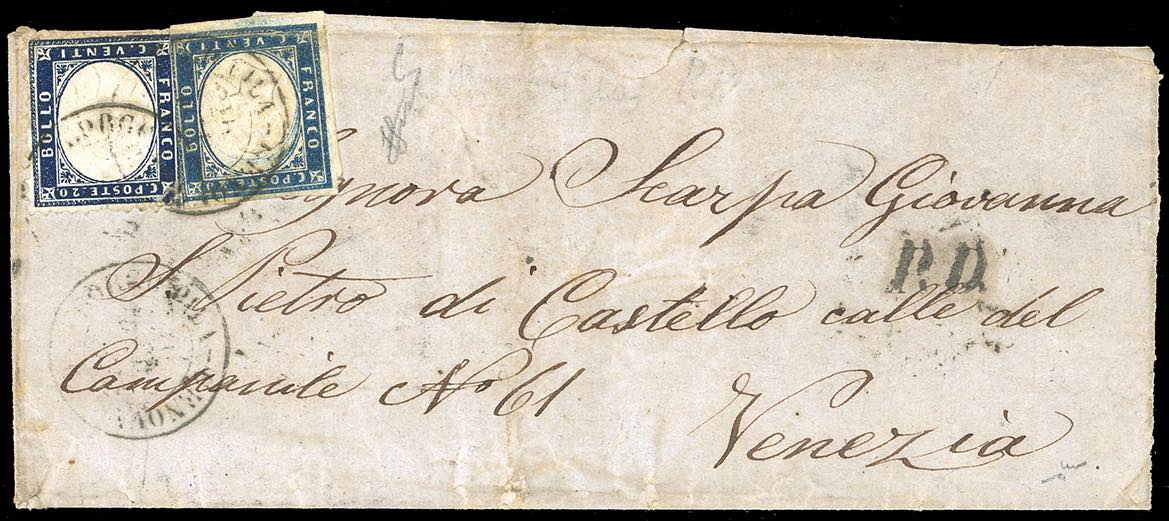 C. VENTI
BOLLO
FRANCO
C. POSTE. 20
C. VENTI
BOLLO
FRANCO
C. POSTE. 20
Signora Scarpa Giovanna
P.D.
S. Pietro di Castello calle del
Campanile No 61
Venezia